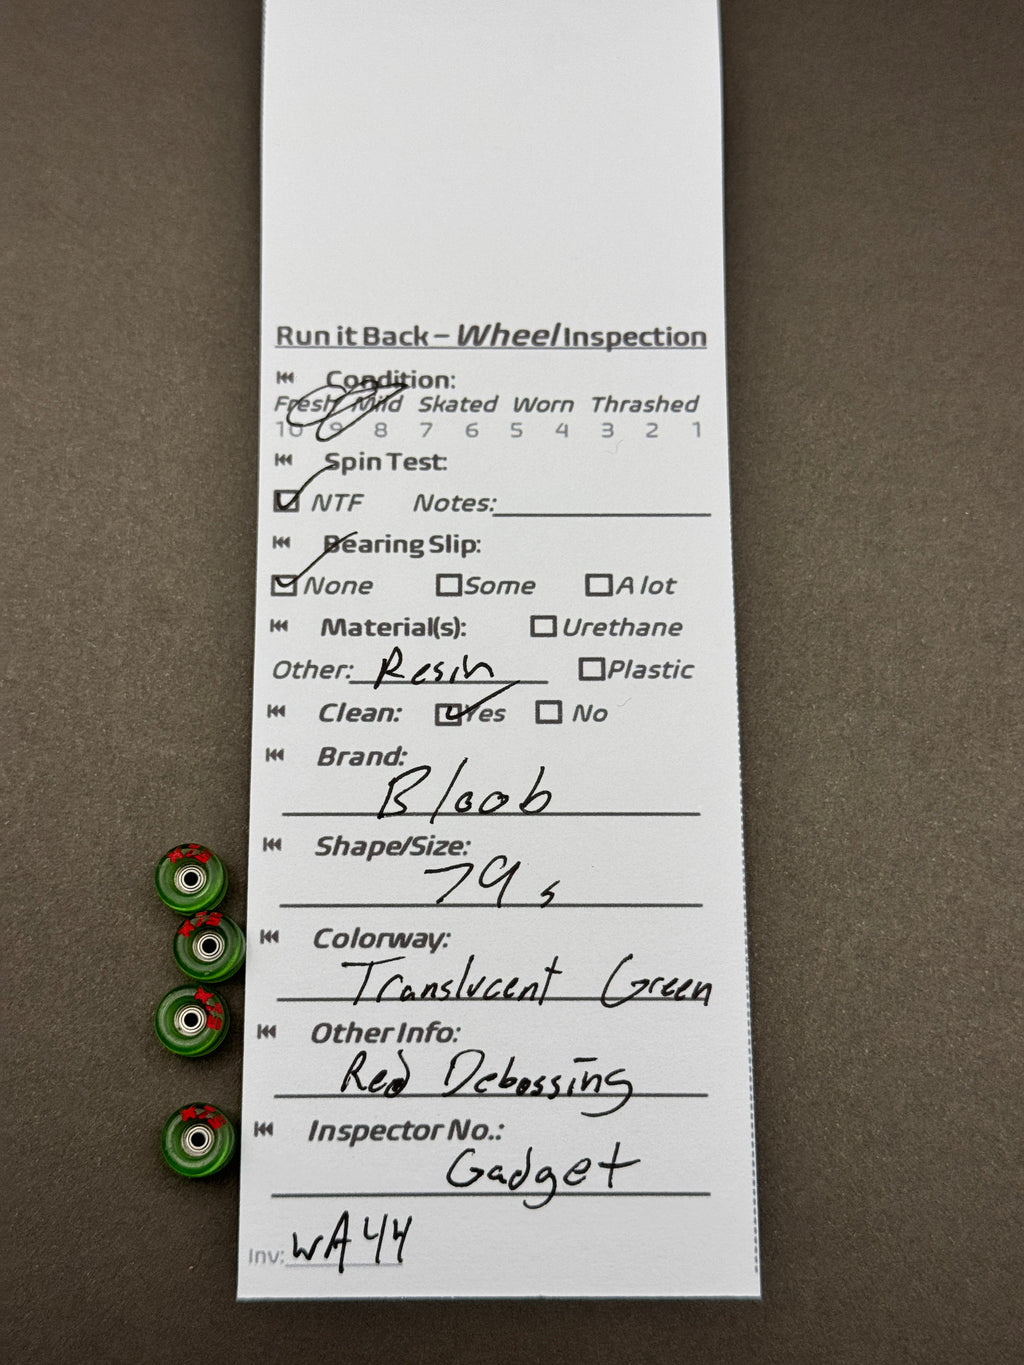 Run it Back – Wheel Inspection
Condition:
Fresh Mild Skated Worn Thrashed
10 9 8 7 6 5 4 3 2 1
Spin Test:
NTF Notes:
Bearing Slip:
None Some A lot
Material(s): Urethane
Other: Resin Plastic
Clean: Yes No
Brand:
Bloob
Shape/Size:
79s
Colorway:
Translucent Green
Other Info:
Red Debossing
Inspector No.:
Gadget
Inv: WA44